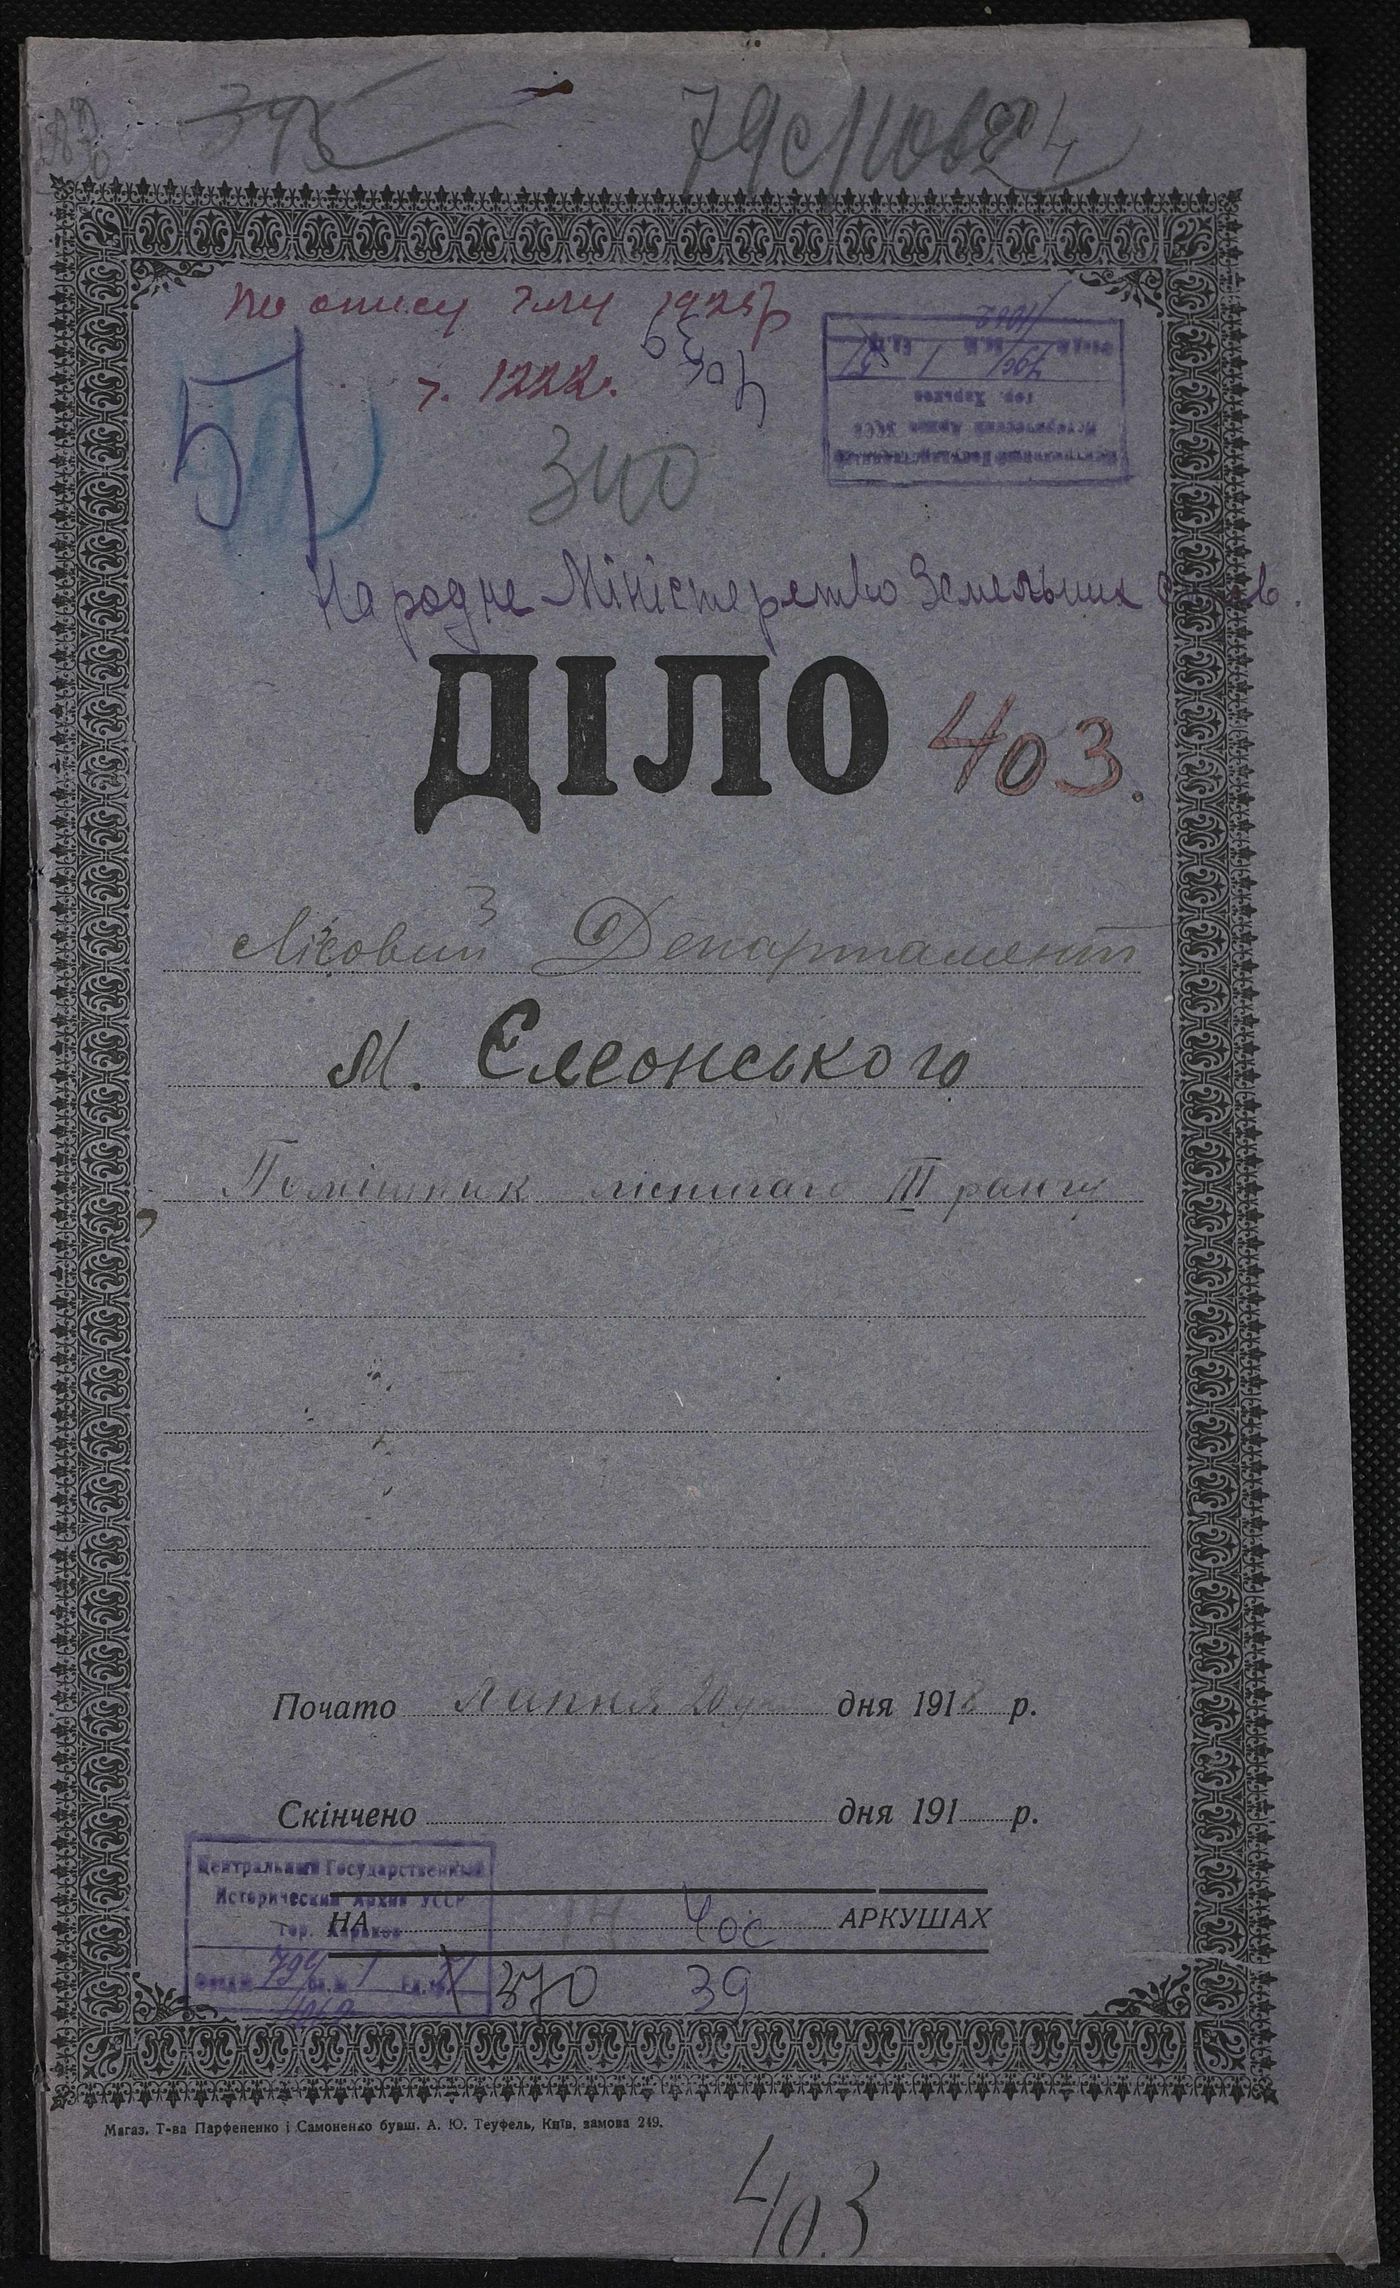 395
по опису 1925 р
ч. 1222.
4039
51
340
Центральный Государственный
Исторический Архив УССР
гор. Харьков
Народне Міністерство Земельних справ.
ДІЛО 403.
Лісовий Департамент
М. Єлеонського
Помішник лісничаго III рангу
Почато липня 20 дня 1918 р.
Скінчено дня 191 р.
Центральный Государственный
Исторический Архив УССР
гор. Харьков
НА АРКУШАХ
370 39
Магаз. Т-ва Парфененко і Самоненко бувш. А. Ю. Теуфель, Київ, замова 249.
403